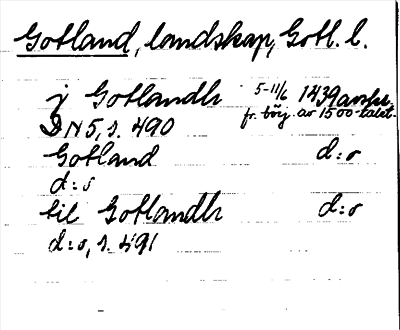 Gotland, landskap, Gotl. l.
j Gotlandh 5-11/6 1439 avskr.
fr. börj. av 1500-talet.
DN 5, s. 490
Gotland d:o
d:o
til Gotlandh d:o
d:o, s. 491